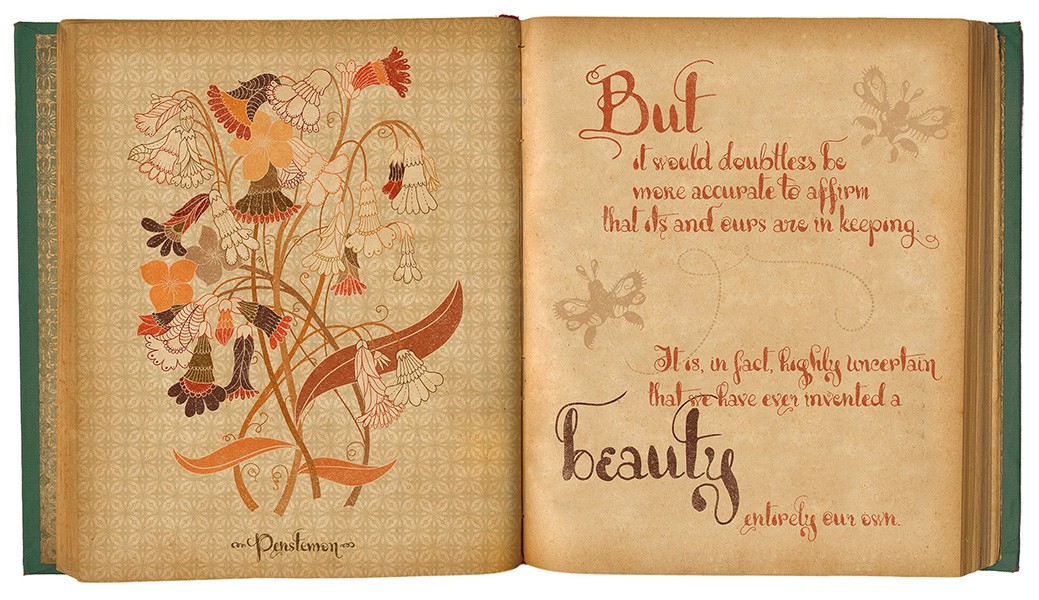 Penstemon
But
it would doubtless be
more accurate to affirm
that its and ours are in keeping.
It is, in fact, highly uncertain
that we have ever invented a
beauty
entirely our own.